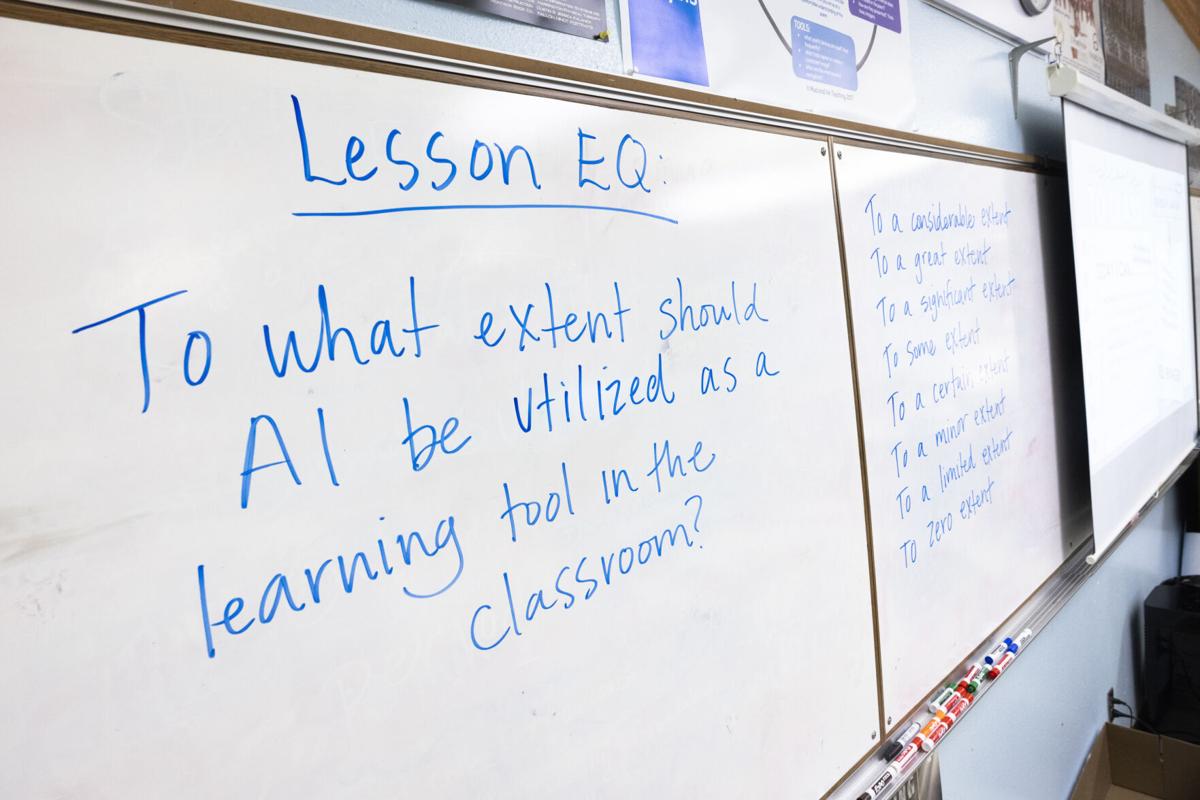 Lesson EQ:
To what extent should
AI be utilized as a
learning tool in the
classroom?
To a considerable extent
To a great extent
To a significant extent
To some extent
To a certain extent
To a minor extent
To a limited extent
To zero extent
TOOLS: